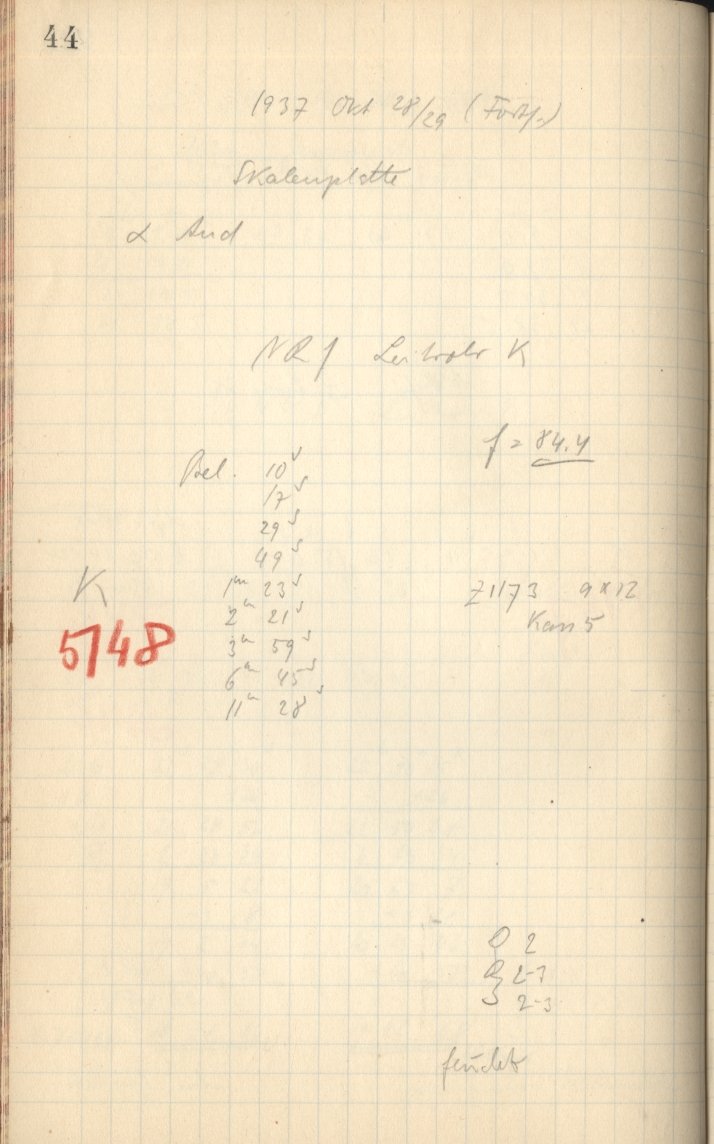 44
1937 Okt 28/29 (Forts.)
Skalenplatte
α And
Leitrohr K
f = 84.4
Bel. 10s
17s
29s
49s
1m 23s
2m 21s
3m 59s
6m 45s
11m 28s
K
5748
Z1173 9x12
Kass 5
2
2-3
feucht